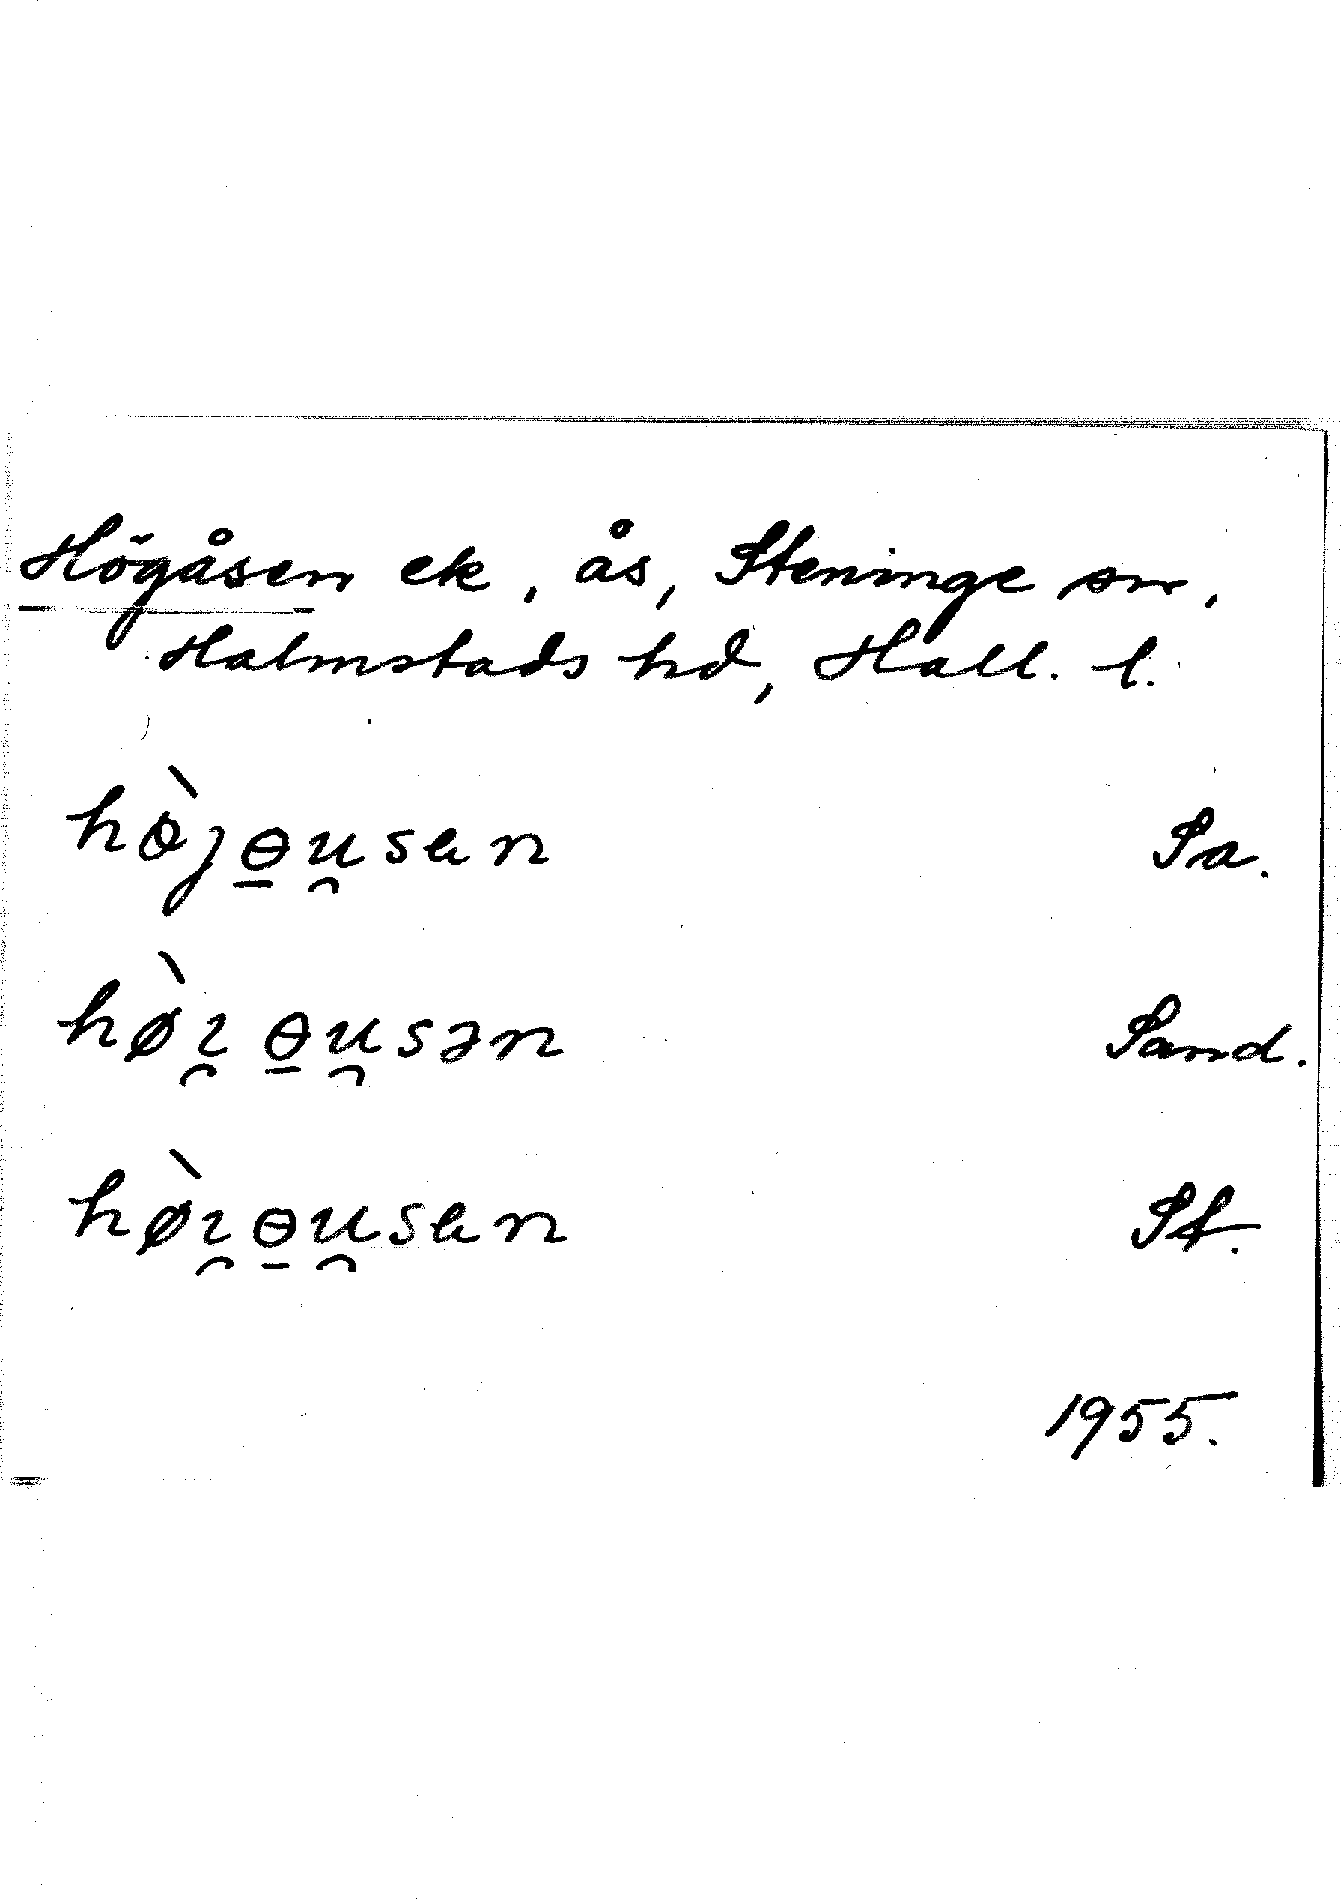 Högåsen ek, ås, Steninge sn,
Halmstads hd, Hall. l.
hò̵jɵ̱u̯sɐn Sa.
hø̀ɿ̯ɵ̱u̯sən Sand.
hø̀ɿ̯ɵ̱u̯sɐn St.
1955.